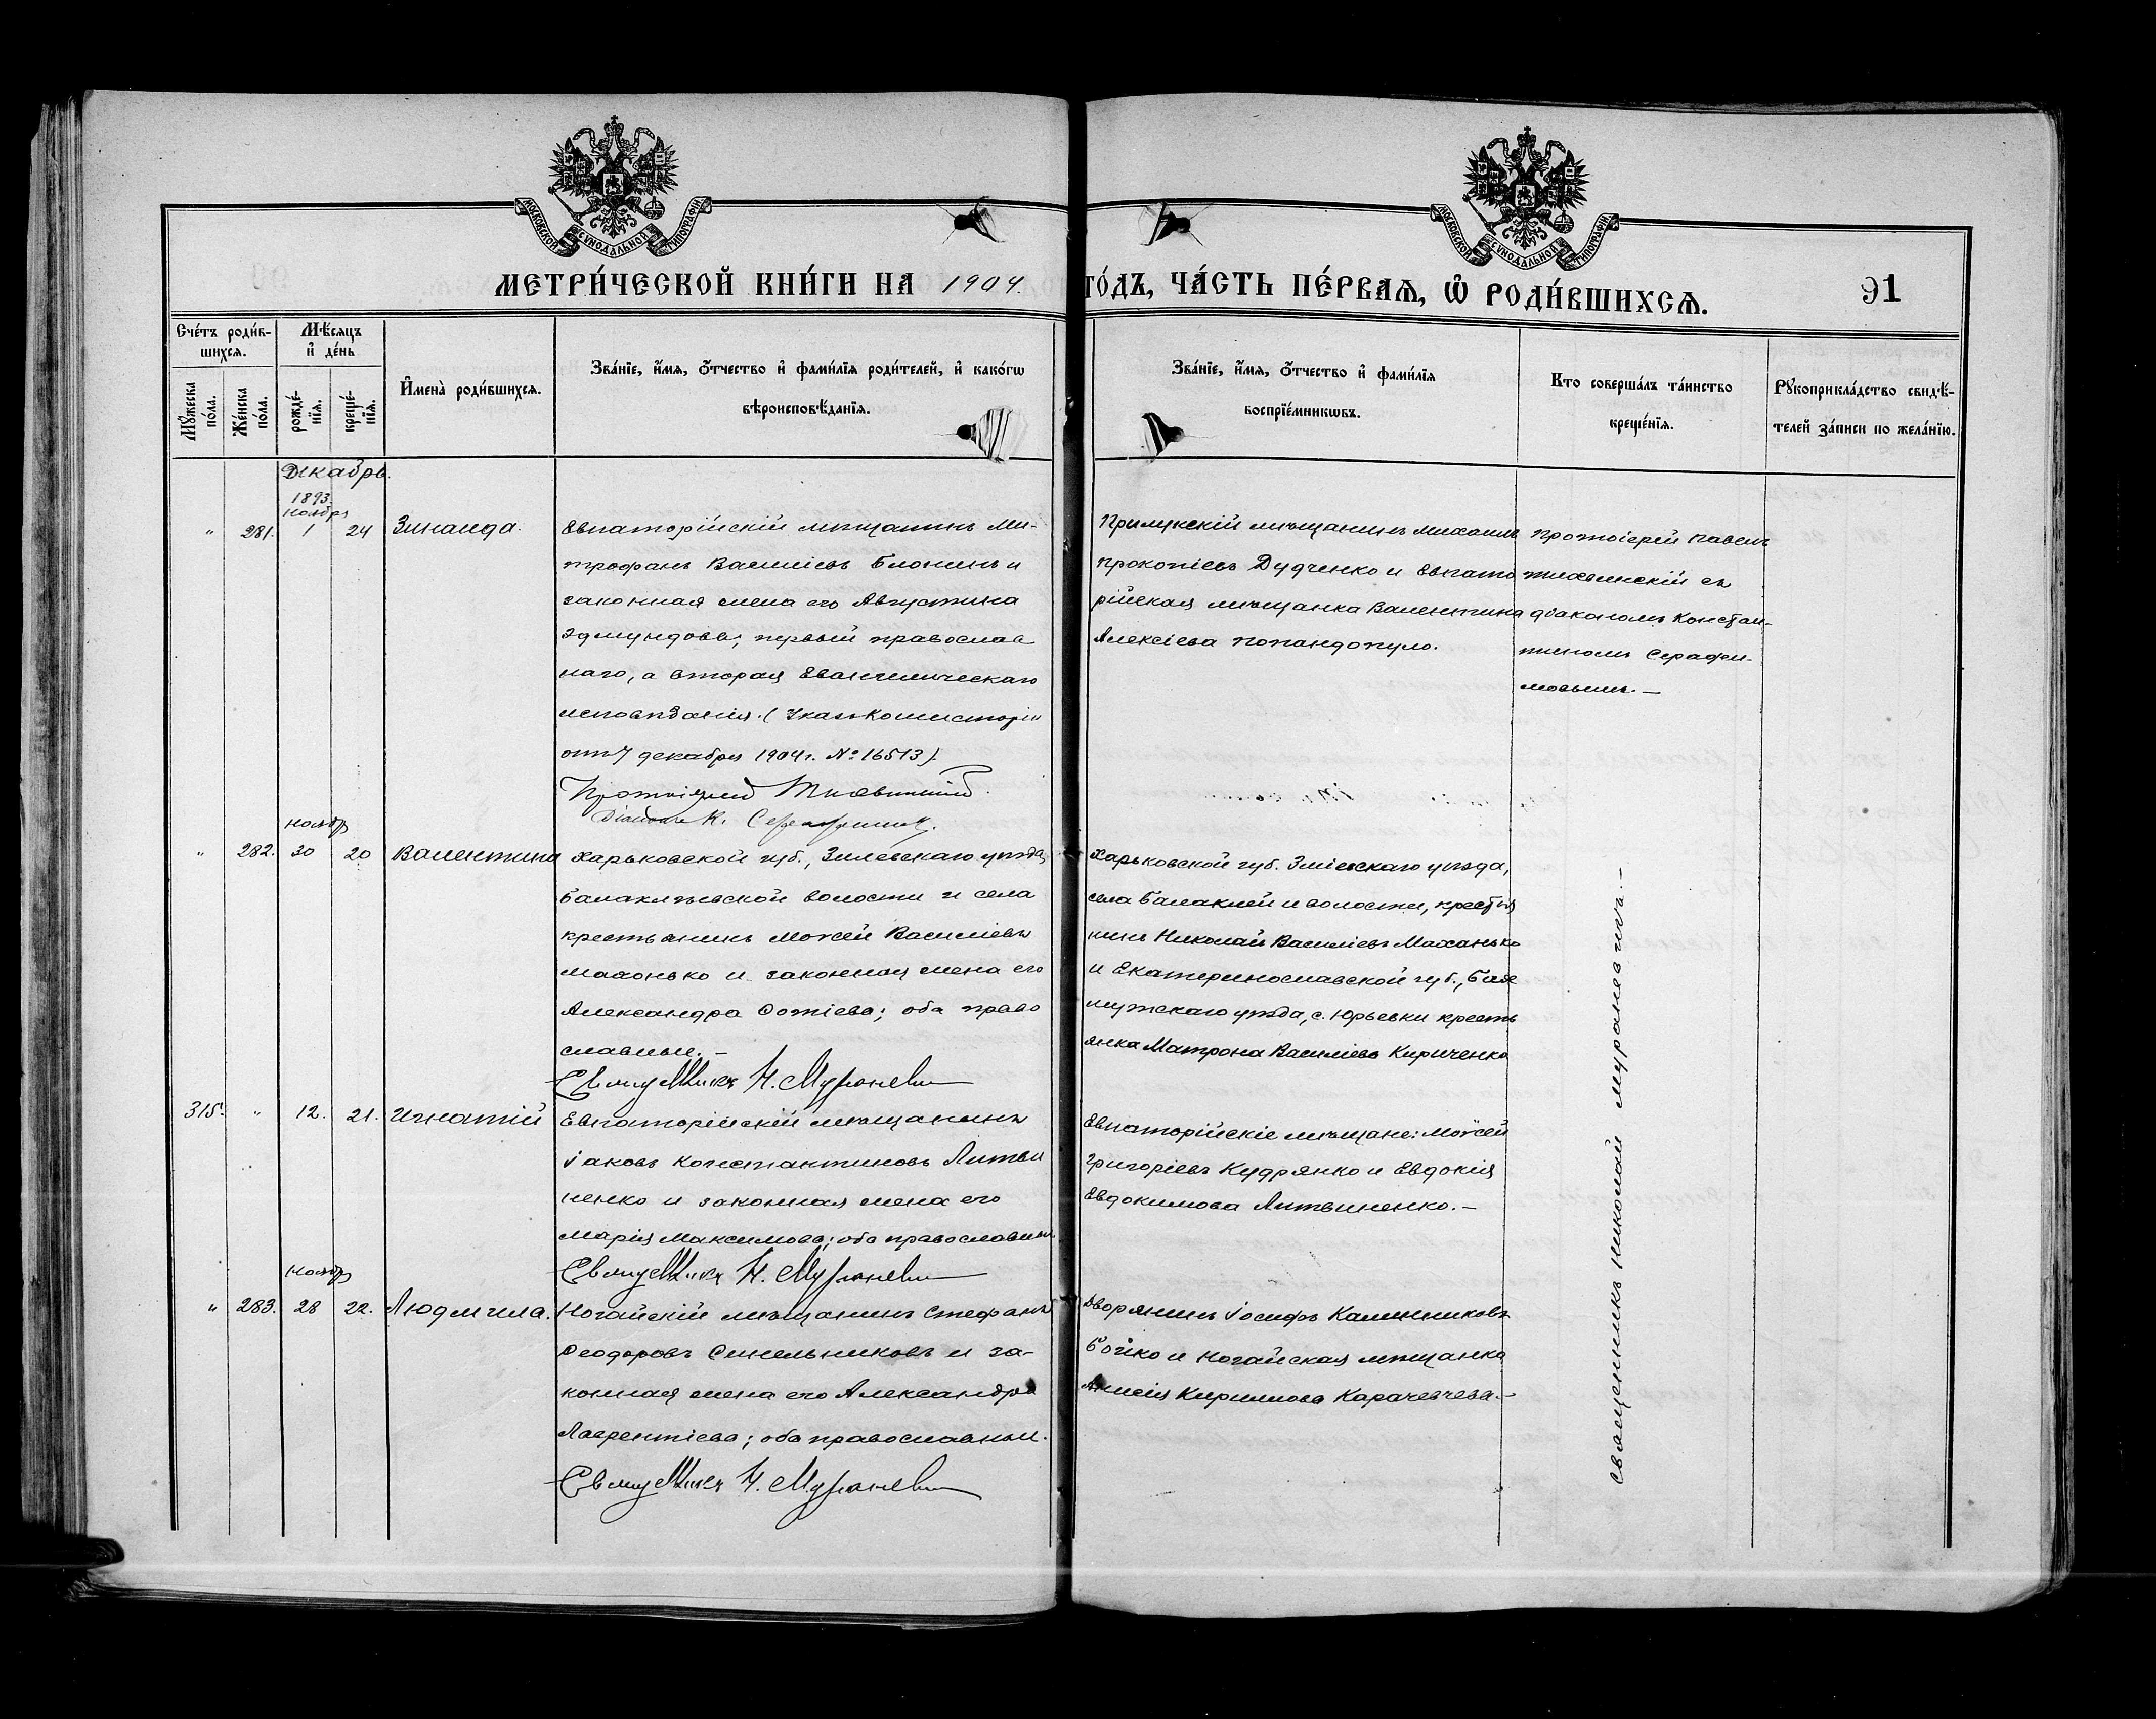 МОСКОВСКОЙ СѴНОДАЛЬНОЙ ТИПОГРАФІИ
МОСКОВСКОЙ СѴНОДАЛЬНОЙ ТИПОГРАФІИ
МЕТРИ́ЧЕСКОЙ КНИ́ГИ НА 1904.
ГО́ДЪ, ЧА́СТЬ ПЕ́РВАѦ, Ѡ҆ РОДИ́ВШИХСѦ.
91
Сче́тъ роди́в-
шихсѧ.
Мѣ́сѧцъ
и҆ де́нь
Мꙋ́жеска по́ла.
Же́нска по́ла.
рожде́-нїѧ.
креще́-нїѧ.
И҆мена̀ роди́вшихсѧ.
Зва́нїе, и҆́мѧ, ѻ҆́тчество и҆ фами́лїѧ роди́телей, и҆ како́гѡ
вѣроисповѣ́данїѧ.
Зва́нїе, и҆́мѧ, ѻ҆́тчество и҆ фами́лїѧ
воспрїе́мникѡвъ.
Кто соверша́лъ та́инство
креще́нїѧ.
Рꙋкоприкла́дство свидѣ́-
телей за́писи по жела́нїю.
Декабрь.
1893.
Ноябрь
" 281. 1 24 Зинаида.
Евпаторійскій мѣщанинъ Ми-
трофанъ Василіевъ Блонинъ и
законная жена его Августина
Эдмундова; первый православ
наго, а вторая Евангелическаго
исповѣданія. (Указъ Консисторіи
отъ 7 декабря 1904г. № 16513).
Протоіерей Тихвинскій
Діаконъ К. Серафимов.
Прилукскій мѣщанинъ Михаилъ
Прокопіевъ Дудченко и Евпато
рійская мѣщанка Валентина
Алексіева Попандопуло.
Протоіерей Павелъ
Тихвинскій съ
діакономъ Констан-
тиномъ Серафи-
мовымъ. —
Ноябрь
" 282. 30 20 Валентина
Харьковской губ., Зміевскаго уѣзда,
Балаклѣевской волости и села
крестьянинъ Моѵсей Василіевъ
Маханько и законная жена его
Александра Фотіева; оба право
славные. —
Священникъ Н. Мураневич
Харьковской губ. Зміевскаго уѣзда,
села Балаклеи и волости, крестья
нинъ Николай Василіевъ Маханько
и Екатеринославской губ., Бах
мутскаго уѣзда, с. Юрьевки кресть
янка Матрона Василіева Кириченко
315. " 12. 21. Игнатій
Евпаторійскій мѣщанинъ
Іаковъ Константиновъ Литви
ненко и законная жена его
Марія Максимова; оба православные
Священникъ Н. Мураневич
Евпаторійскіе мѣщане: Моѵсей
Григоріевъ Кудрянко и Евдокія
Евдокимова Литвиненко. —
Ноябрь
" 283. 28 22. Людмила.
Ногайскій мѣщанинъ Стефанъ
Ѳеодоровъ Синельниковъ и за-
конная жена его Александра
Лаврентіева; оба православные.
Священникъ Н. Мураневич
Дворянинъ Іосифъ Каллиниковъ
Бойко и Ногайская мѣщанка
Анисія Кириллова Карачевчева. —
Священникъ Николай Мураневичъ. —